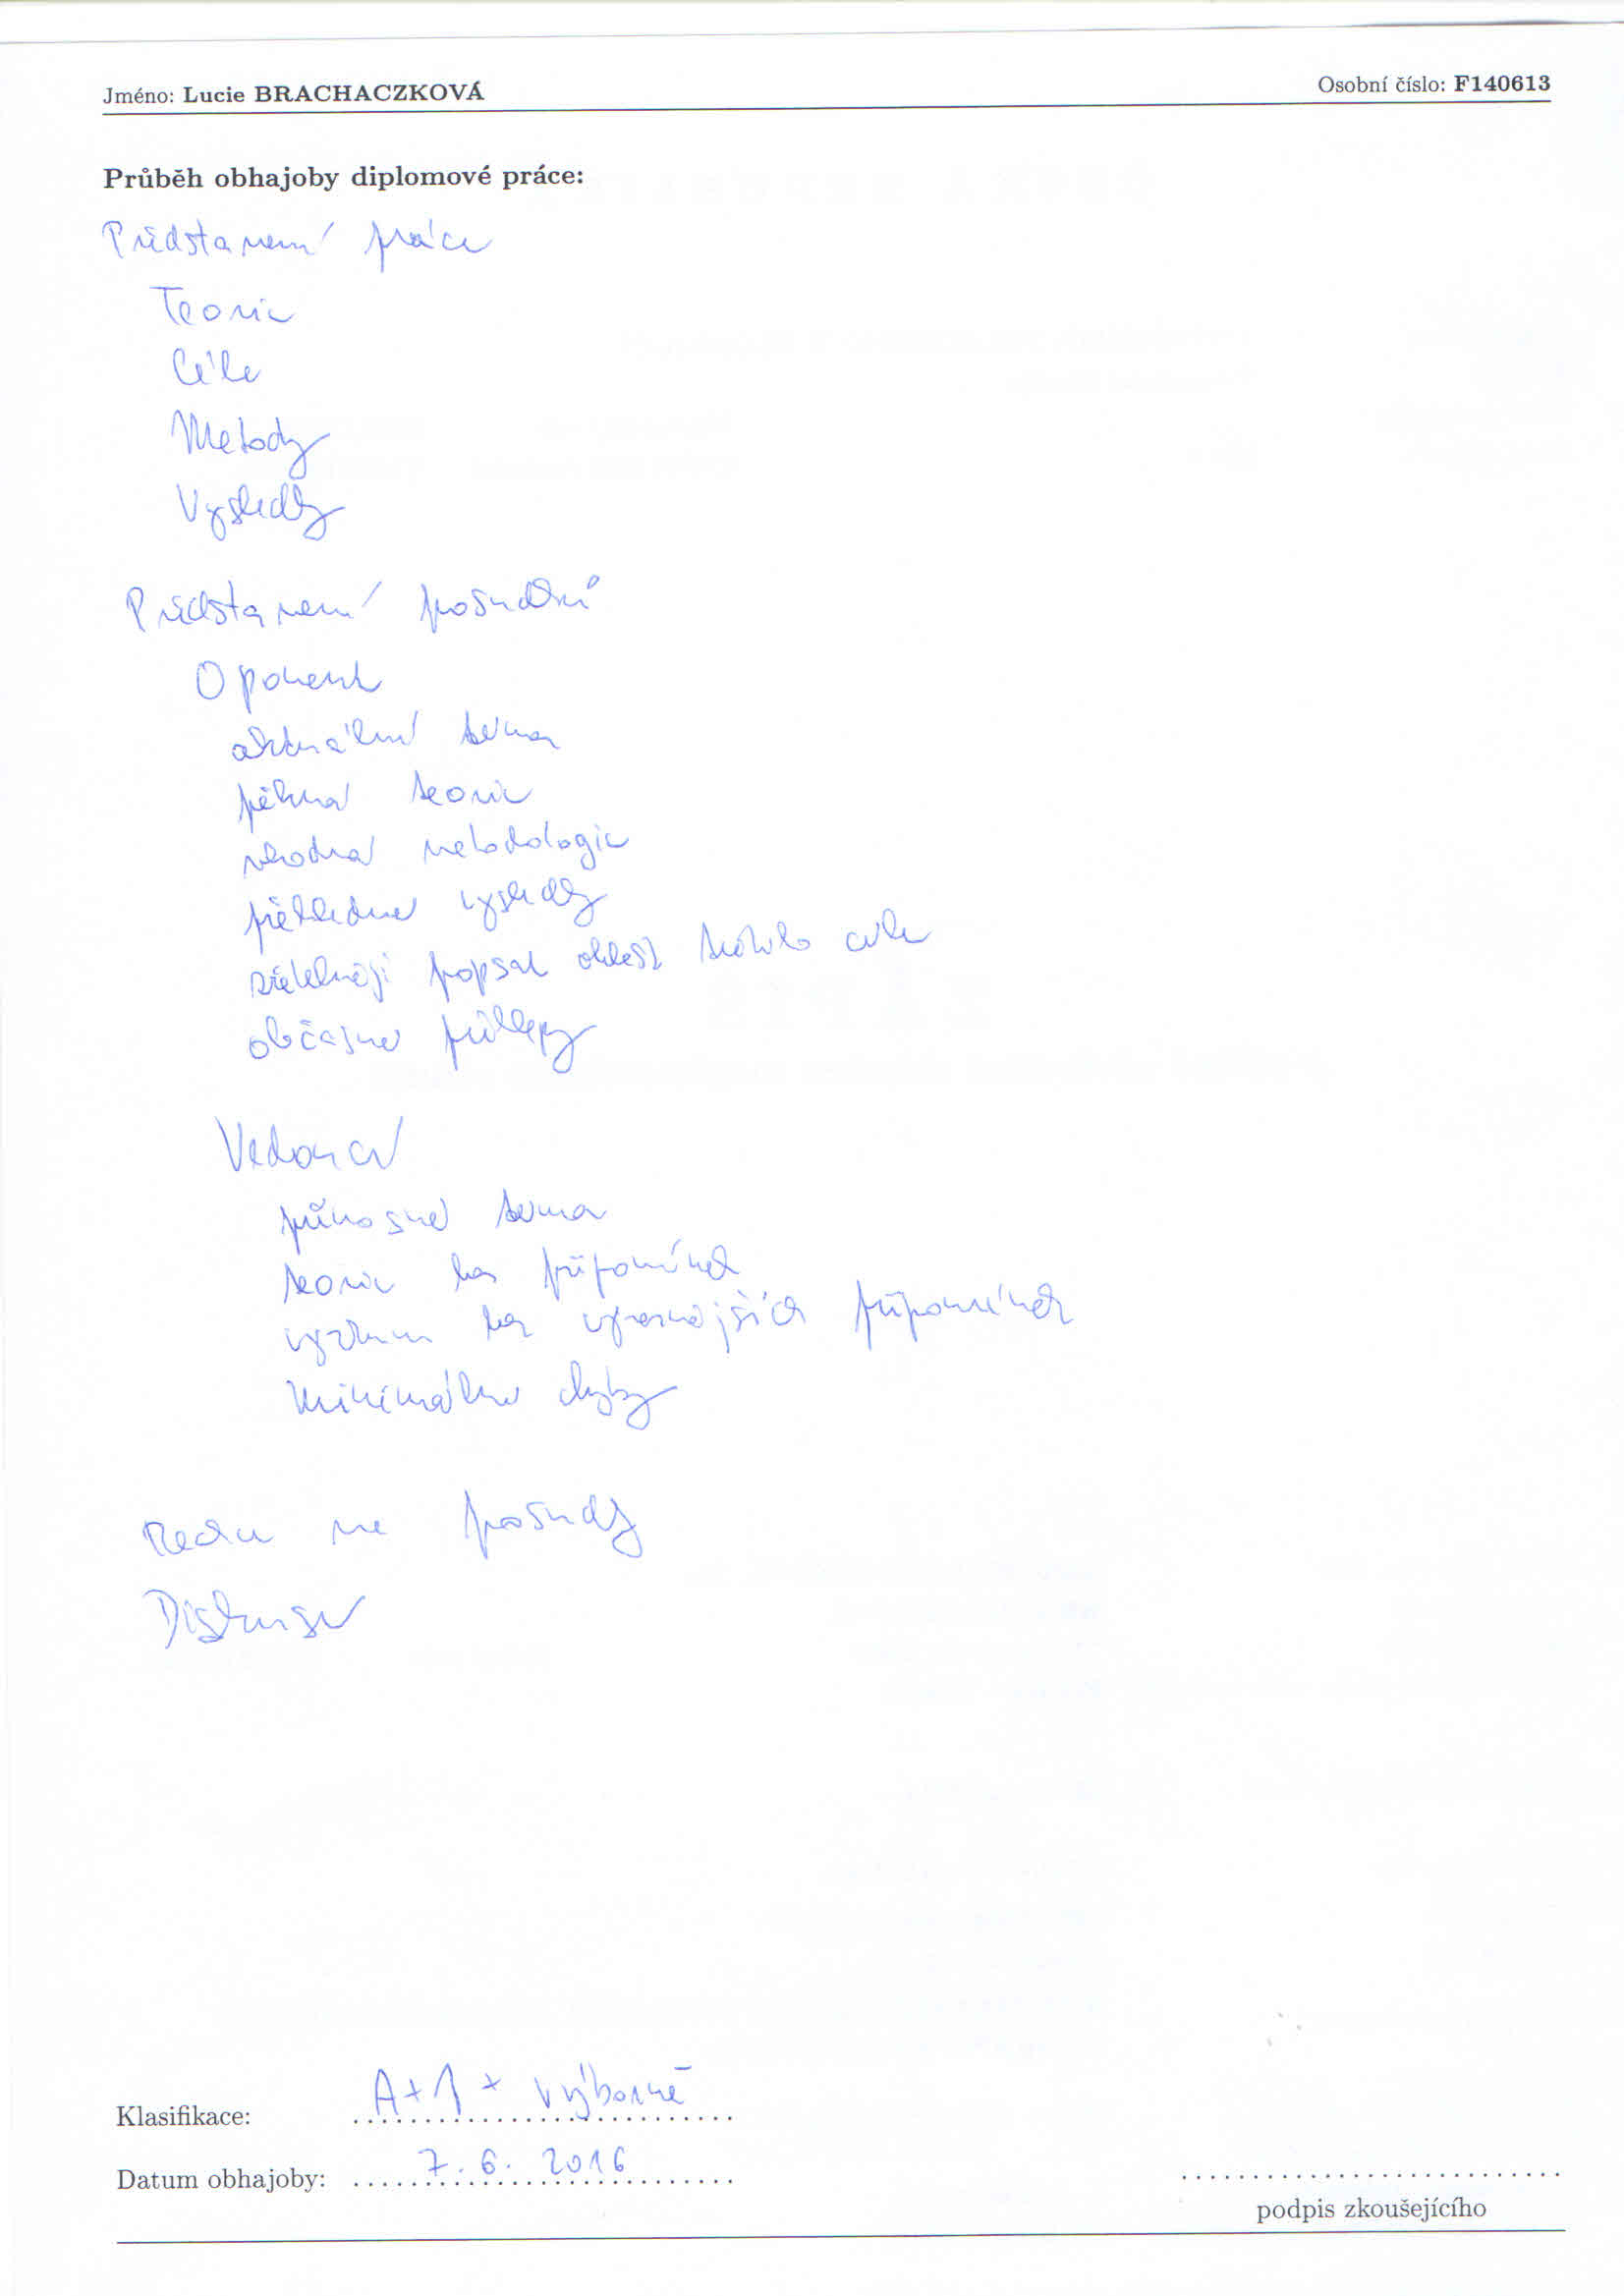 Jméno: Lucie BRACHACZKOVÁ Osobní číslo: F140613
Průběh obhajoby diplomové práce:
Představení práce
Teorie
Cíle
Metody
Výsledky
Představení posudků
Oponent
aktuální téma
pěkná teorie
vhodná metodologie
přehledné výsledky
zřetelněji popsat oblast tohoto cíle
občasné překlepy
Vedoucí
přínosné téma
teorie bez připomínek
výzkum bez výraznějších připomínek
minimálně chyby
Reakce na posudky
Diskuse
Klasifikace: A + 1 + výborně
Datum obhajoby: 7. 6. 2016
podpis zkoušejícího